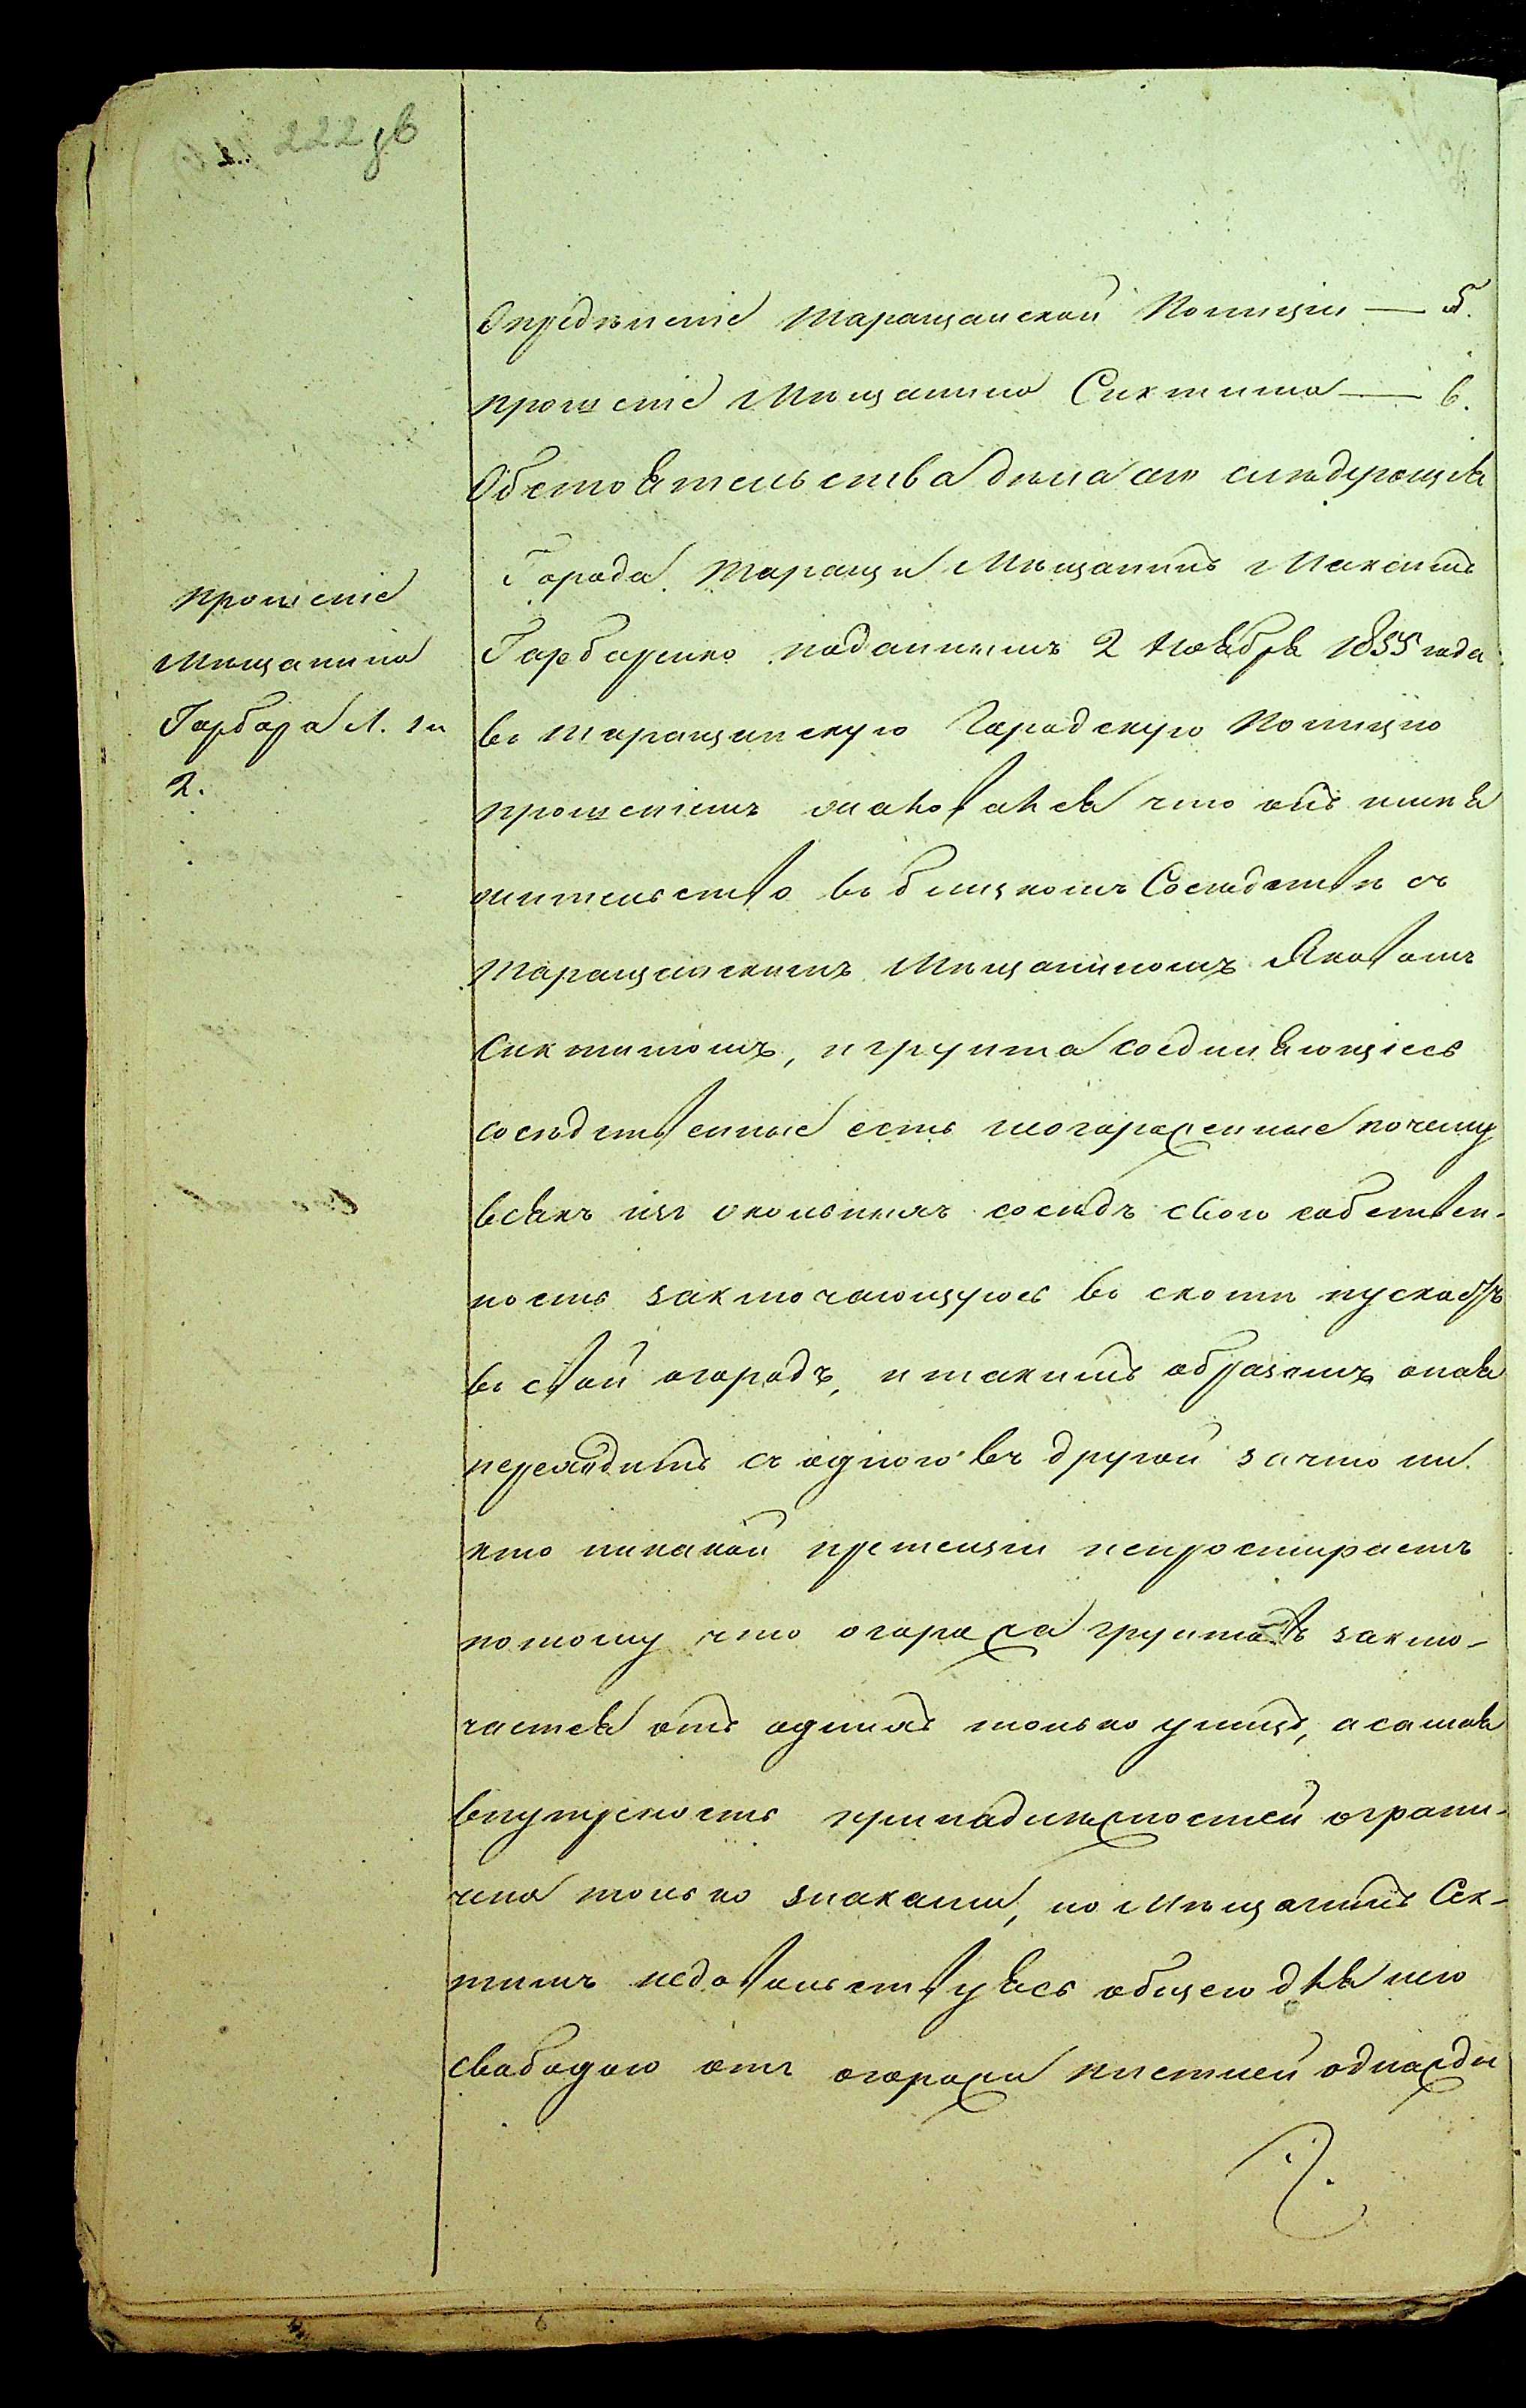 222 зв
Опредѣленіе Таращанской Полиціи — 5.
прошеніе Мѣщанина Сиктима — 6.
Обстоятельства дѣла сіи слѣдующія
Города Таращи Мѣщанинъ Максимъ
Гарбаренко поданнымъ 2 Ноября 1855 года
въ Таращанскую Городскую Полицію
прошеніемъ жаловался что онъ имѣя
жительство въ близкомъ Сосѣдствѣ съ
Таращанскимъ Мѣщаниномъ Яковомъ
Сиктимомъ, и грунта соединяющіесь
сосѣдственные есть неогороженные почему
всякъ изъ окольныхъ сосѣдъ свою собствен-
ность заключающуюсь въ скотѣ пускаетъ
въ свой огородъ, и такимъ образомъ оная
переходитъ съ одного въ другой за что ни
кто никакой претензіи непростираетъ
потому что огорожа грунтовъ заклю-
чается отъ однихъ только улицъ, а самая
внутренность принадлежностей ограни-
чена только знаками, но Мѣщанинъ Сик-
тимъ недовольствуясь общею для него
свободою отъ огорожи плетней однажды
Прошеніе
Мѣщанина
Гарбара л. 1 и
2.